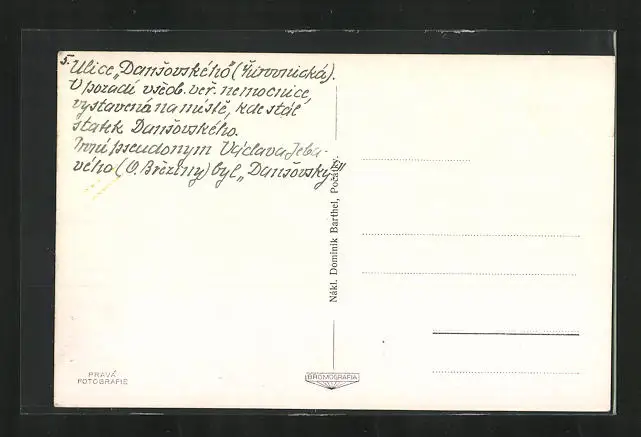 5. Ulice „Danšovského" (Žirovnická).
V pozadí všeob. veř. nemocnice,
vystavená na místě, kde stál
statek Danšovského.
První pseudonym Václava Jeba-
vého (O. Březiny) byl „Danšovský"
Nákl. Dominik Barthel, Počátky.
PRAVÁ
FOTOGRAFIE
BROMOGRAFIA